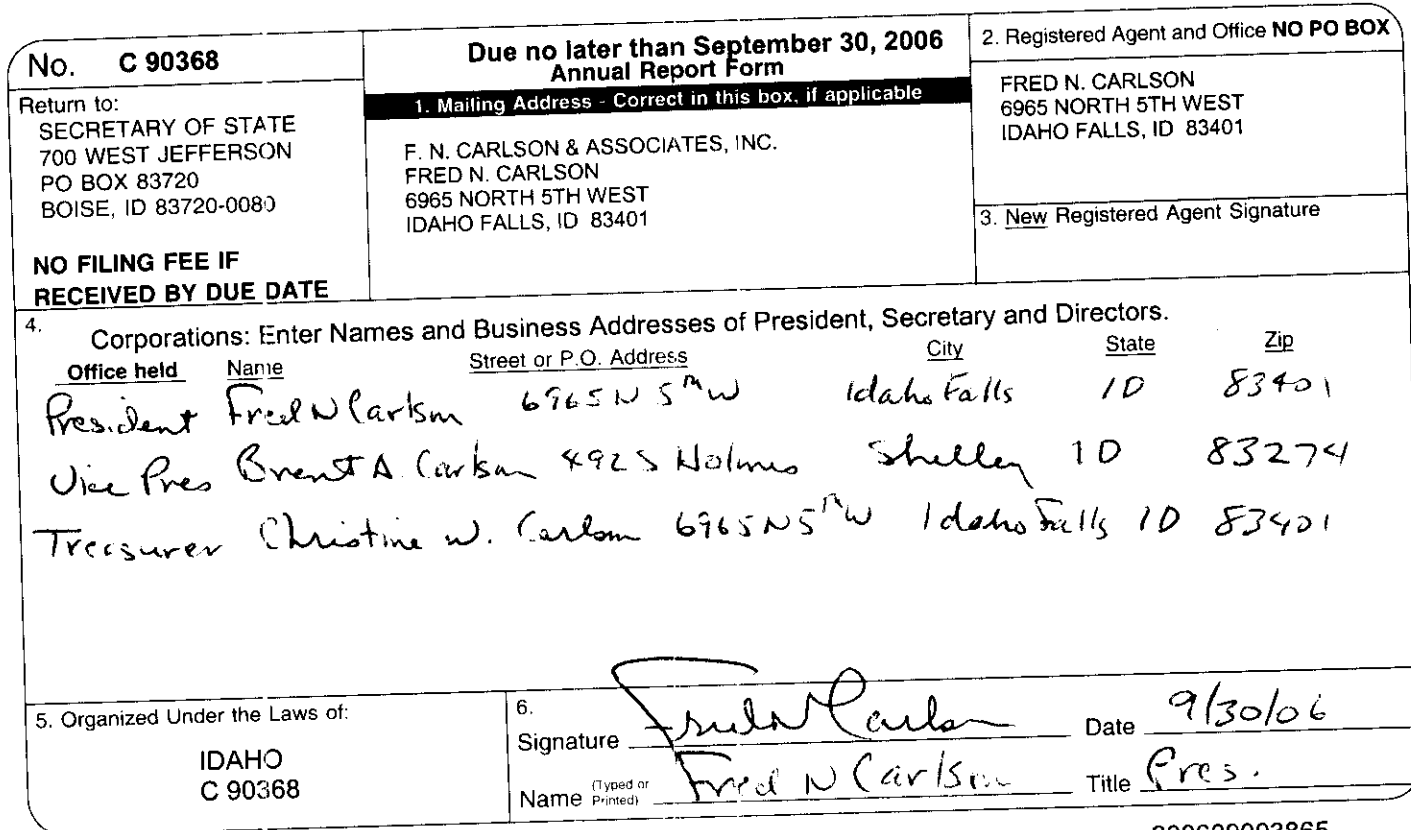 No. C 90368
Return to:
SECRETARY OF STATE
700 WEST JEFFERSON
PO BOX 83720
BOISE, ID 83720-0080
NO FILING FEE IF
RECEIVED BY DUE DATE
Due no later than September 30, 2006
Annual Report Form
1. Mailing Address - Correct in this box, if applicable
F. N. CARLSON & ASSOCIATES, INC.
FRED N. CARLSON
6965 NORTH 5TH WEST
IDAHO FALLS, ID 83401
2. Registered Agent and Office NO PO BOX
FRED N. CARLSON
6965 NORTH 5TH WEST
IDAHO FALLS, ID 83401
3. New Registered Agent Signature
4. Corporations: Enter Names and Business Addresses of President, Secretary and Directors.
Office held Name Street or P.O. Address City State Zip
President Fred N Carlson 6965 N 5th W Idaho Falls ID 83401
Vice Pres Brent A. Carlson 492 S Holmes Shelley ID 83274
Treasurer Christine W. Carlson 6965 N 5th W Idaho Falls ID 83401
5. Organized Under the Laws of:
IDAHO
C 90368
6.
Signature Fred N Carlson Date 9/30/06
Name (Typed or Printed) Fred N Carlson Title Pres.